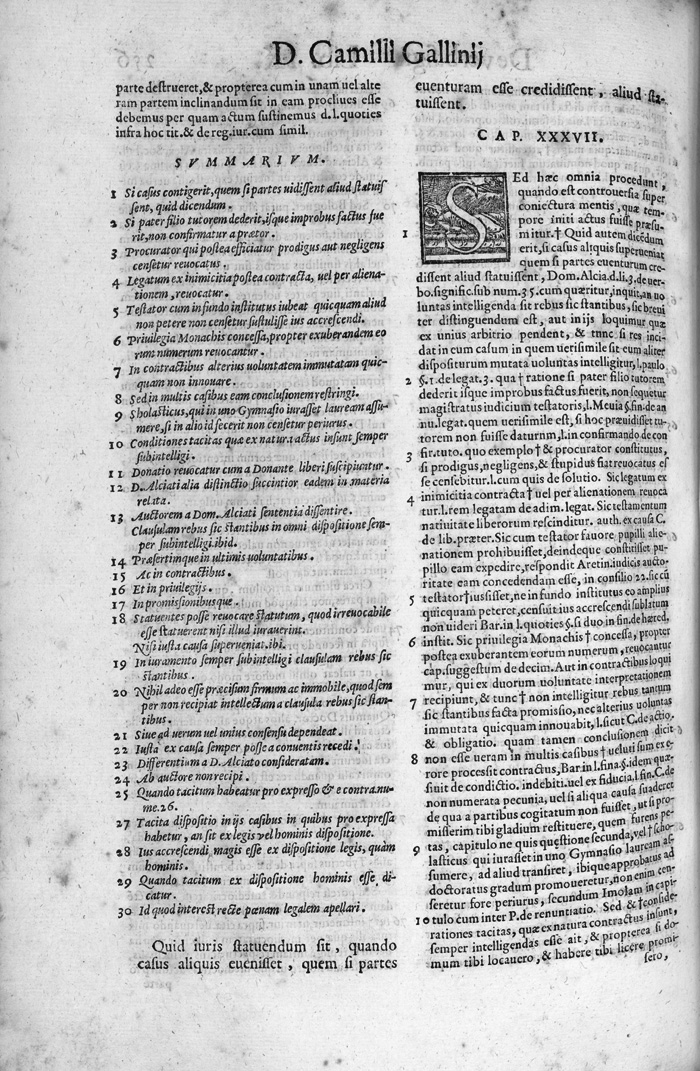 D. Camilli Gallinij
parte destrueret, & propterea cum in unam uel alte
ram partem inclinandum sit in eam procliues esse
debemus per quam actum sustinemus d.l. quoties
infra hoc tit. & de reg. iur. cum simil.
SVMMARIVM.
1 Si casus contigerit, quem si partes uidissent aliud statuis
sent, quid dicendum.
2 Si pater filio tutorem dederit, isque improbus factus fue
rit, non confirmatur a prætor.
3 Procurator qui postea efficiatur prodigus aut negligens
censetur reuocatus.
4 Legatum ex inimicitia postea contracta, uel per aliena-
tionem, reuocatur.
5 Testator cum in fundo institutus iubeat quicquam aliud
non petere non censetur sustulisse ius accrescendi.
6 Priuilegia Monachis concessa, propter exuberandem eo
rum numerum reuocantur.
7 In contractibus alterius uoluntatem immutatam quic-
quam non innouare.
8 Sed in multis casibus eam conclusionem restringi.
9 Sholasticus, qui in uno Gymnasio iurasset lauream assu-
mere, si in alio id fecerit non censetur periurus.
10 Conditiones tacitas quæ ex natura actus insunt semper
subintelligi.
11 Donatio reuocatur cum a Donante liberi suscipiuntur.
12 D. Alciati alia distinctio succintior eadem in materia
relata.
13 Auctorem a Dom. Alciati sententia dissentire.
Clausulam rebus sic stantibus in omni dispositione sem-
per subintelligi. ibid.
14 Præsertimque in ultimis uoluntatibus.
15 Ac in contractibus.
16 Et in priuilegijs.
17 In promissionibusque.
18 Statuentes posse reuocare statutum, quod irreuocabile
esse statuerent nisi illud iurauerint.
Nisi iusta causa superueniat. ibi.
19 In iuramento semper subintelligi clausulam rebus sic
stantibus.
20 Nihil adeo esse præcisum firmum ac immobile, quod sem
per non recipiat intellectum a clausula rebus sic stan-
tibus.
21 Siue ad uerum uel unius consensu dependeat.
22 Iusta ex causa semper posse a conuentis recedi.
23 Differentium a D. Alciato consideratam.
24 Ab auctore non recipi.
25 Quando tacitum habeatur pro expresso & e contra. nu-
me. 26.
27 Tacita dispositio in ijs casibus in quibus pro expressa
habetur, an sit ex legis vel hominis dispositione.
28 Ius accrescendi magis esse ex dispositione legis, quàm
hominis.
29 Quando tacitum ex dispositione hominis esse di-
catur.
30 Id quod interest recte pœnam legalem apellari.
Quid iuris statuendum sit, quando
casus aliquis euenisset, quem si partes
euenturam esse credidissent, aliud sta-
tuissent.
CAP. XXXVII.
SEd hæc omnia procedunt,
quando est controuersia super
coniectura mentis, quæ tem-
pore initi actus fuisse præsu-
1 mitur. † Quid autem dicẽdum
erit, si casus aliquis superueniat
quem si partes euenturum cre-
dissent aliud statuissent, Dom. Alcia. d. li. 3. de uer-
bo. signific. sub num. 35. cum quæritur, inquit, an uo
luntas intelligenda sit rebus sic stantibus, sic breui
ter distinguendum est, aut in ijs loquimur quæ
ex unius arbitrio pendent, & tunc si res inci-
dat in eum casum in quem uerisimile sit eum aliter
dispositurum mutata uoluntas intelligitur, l. paulo
2 §. 1. de legat. 3. qua † ratione si pater filio tutorem
dederit isque improbus factus fuerit, non sequetur
magistratus iudicium testatoris, l. Meuia §. fin. de an
nu. legat. quem uerisimile est, si hoc præuidisset tu-
torem non fuisse daturum, l. in confirmando de con
3 fir. tuto. quo exemplo † & procurator constitutus,
si prodigus, negligens, & stupidus fiat reuocatus es
se censebitur. l. cum quis de solutio. Sic legatum ex
4 inimicitia contracta † uel per alienationem reuoca
tur. l. rem legatam de adim. legat. Sic testamentum
natiuitate liberorum rescinditur. auth. ex causa C.
de lib. præter. Sic cum testator fauore pupilli alie-
nationem prohibuisset, deindeque constitisset pu-
pillo eam expedire, respondit Aretin. iudicis aucto-
ritate eam concedendam esse, in consilio 22. sic cũ
5 testator † iussisset, ne in fundo institutus eo amplius
quicquam peteret, censuit ius accrescendi sublatum
non uideri Bar. in l. quoties §. si duo in fin. de hæred.
6 instit. Sic priuilegia Monachis † concessa, propter
postea exuberantem eorum numerum, reuocantur
cap. suggestum de decim. Aut in contractibus loqui
mur, qui ex duorum uoluntate interpretationem
7 recipiunt, & tunc † non intelligitur rebus tantum
sic stantibus facta promissio, nec alterius uoluntas
immutata quicquam innouabit, l. sicut C. de actio.
& obligatio. quam tamen conclusionem dicit
8 non esse ueram in multis casibus † ueluti sum ex er-
rore processit contractus, Bar. in l. fina. §. idem quæ-
siuit de condictio. indebiti. uel ex fiducia, l. fin. C. de
non numerata pecunia, uel si aliqua causa suaderet
de qua a partibus cogitatum non fuisset, ut si pro-
miserim tibi gladium restituere, quem furens pe-
9 tas, capitulo ne quis questione secunda, vel † scho-
lasticus qui iurasset in uno Gymnasio lauream as-
sumere, ad aliud transiret, ibique approbatus ad
doctoratus gradum promoueretur, non enim cen-
seretur fore periurus, secundum Imolam in capi-
10 tulo cum inter P. de renuntiatio. Sed & † conside-
rationes tacitas, quæ ex natura contractus insunt,
semper intelligendas esse ait, & propterea si do-
mum tibi locauero, & habere tibi licere promi-
sero,